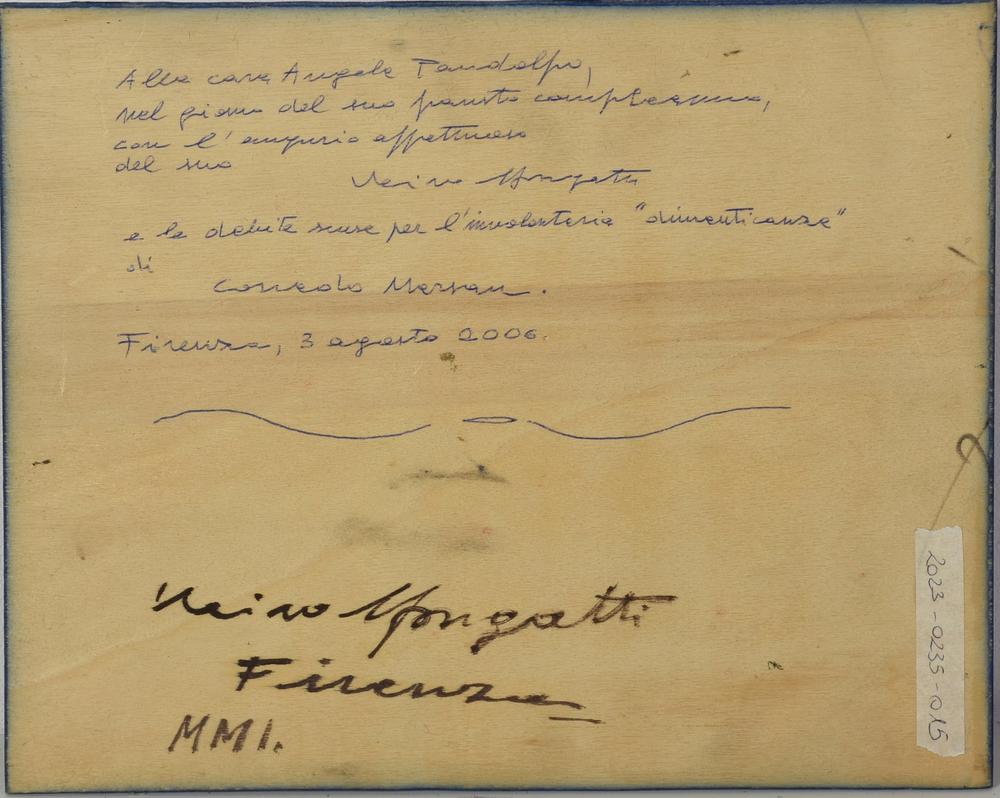 Alla cara Angela Pandolfo,
nel giorno del suo fausto compleanno,
con l'augurio affettuoso
del suo
Vairo Mongatti
e le debite scuse per l'involontaria "dimenticanza"
di
Corrado Marsan.
Firenze, 3 agosto 2006.
Vairo Mongatti
Firenze
MMI.
2023-0235-015